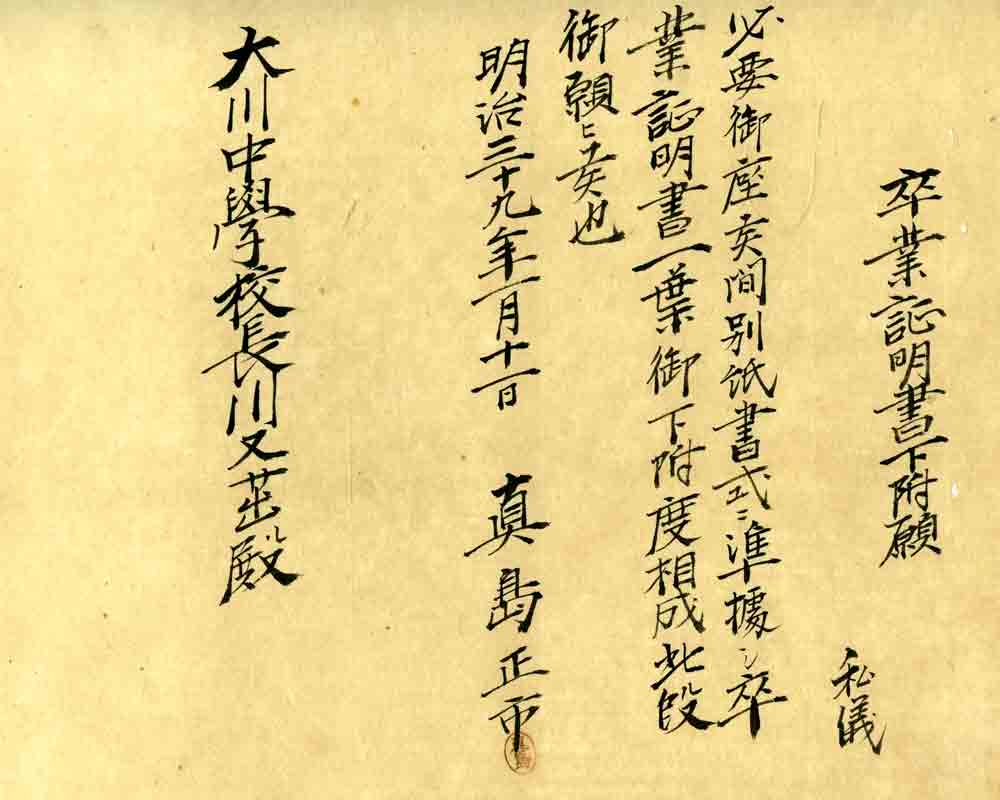 卒業証明書下附願
私儀
必要御座候間別紙書式ニ準據シ卒
業証明書一葉御下附度相成此段
御願ニ候也
明治三十九年一月十一日 真島正市
大川中學校長川又茁殿